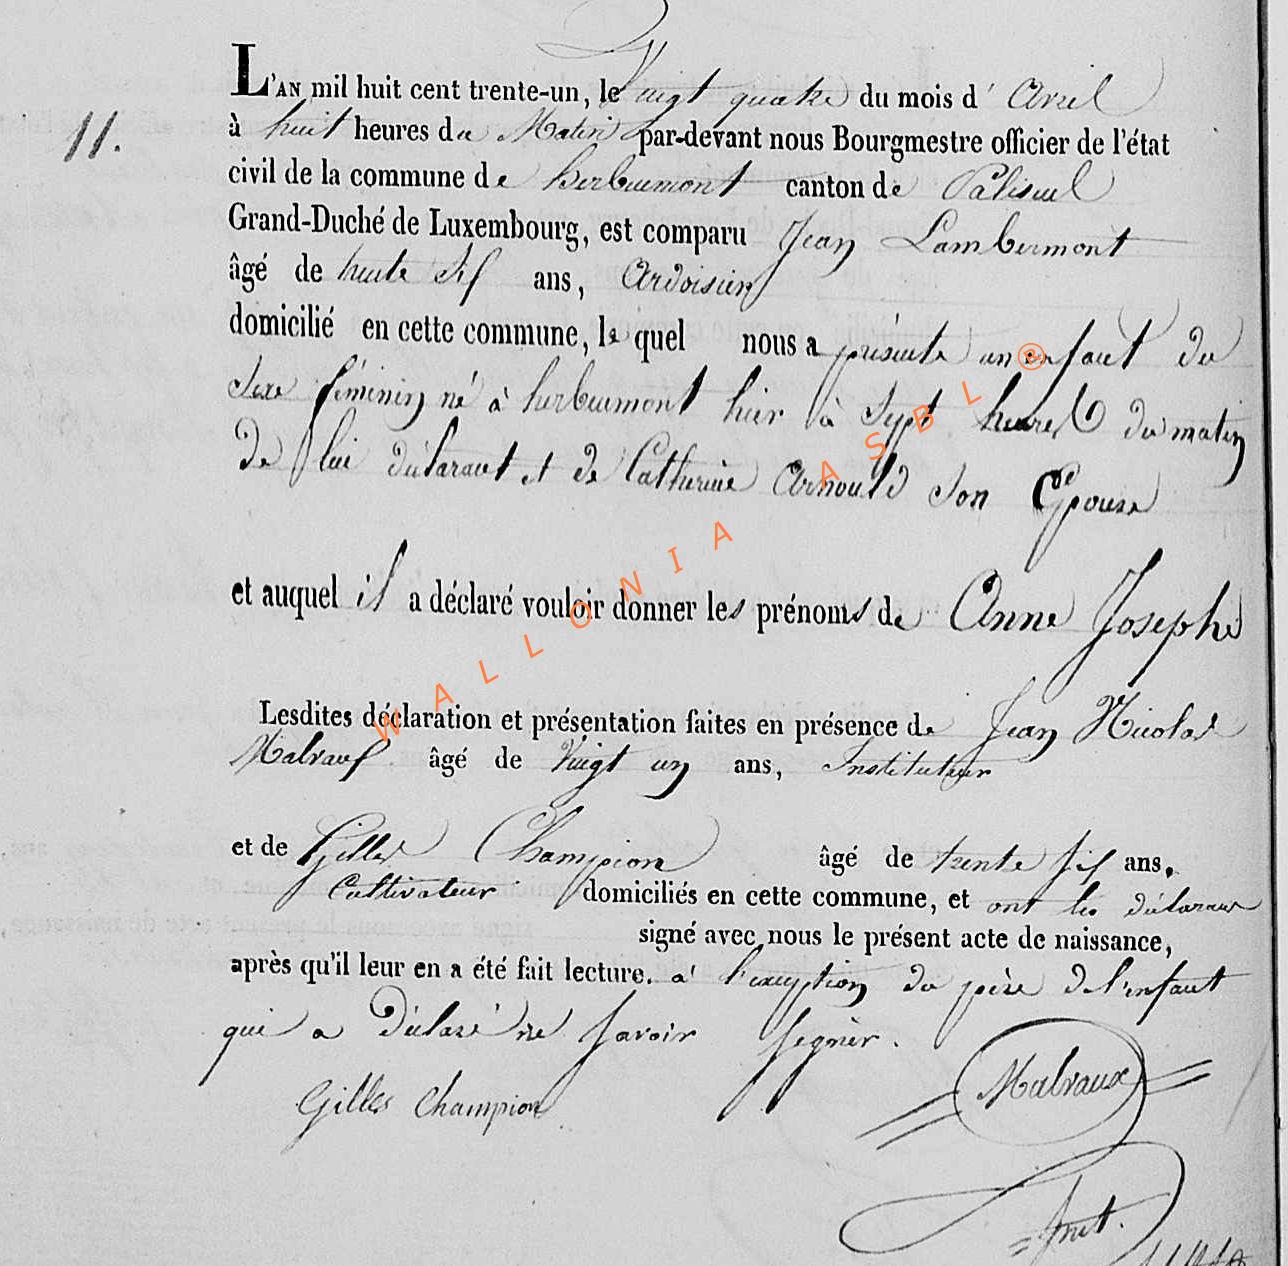 L'AN mil huit cent trente-un, le Vingt quatre du mois d' Avril
11.
à huit heures du Matin par-devant nous Bourgmestre officier de l'état
civil de la commune de herbeumont canton de Paliseul
Grand-Duché de Luxembourg, est comparu Jean Lambermont
âgé de trente Six ans, Ardoisier
domicilié en cette commune, le quel nous a présenté un enfant du
Sexe féminin né à herbeumont hier à Sept heures du matin
De lui déclarant et de Catherine Arnould Son Epouse
et auquel il a déclaré vouloir donner les prénoms de Anne Josephe
Lesdites déclaration et présentation faites en présence de Jean Nicolas
Malvaux âgé de Vingt un ans, Instituteur
et de Gilles Champion âgé de trente six ans,
Cultivateur domiciliés en cette commune, et ont les déclarans
signé avec nous le présent acte de naissance,
après qu'il leur en a été fait lecture. à l'exception du père de l'enfant
qui a Déclaré ne Savoir Signèr.
Gilles Champion
Malvaux
WALLONIA ASBL ®